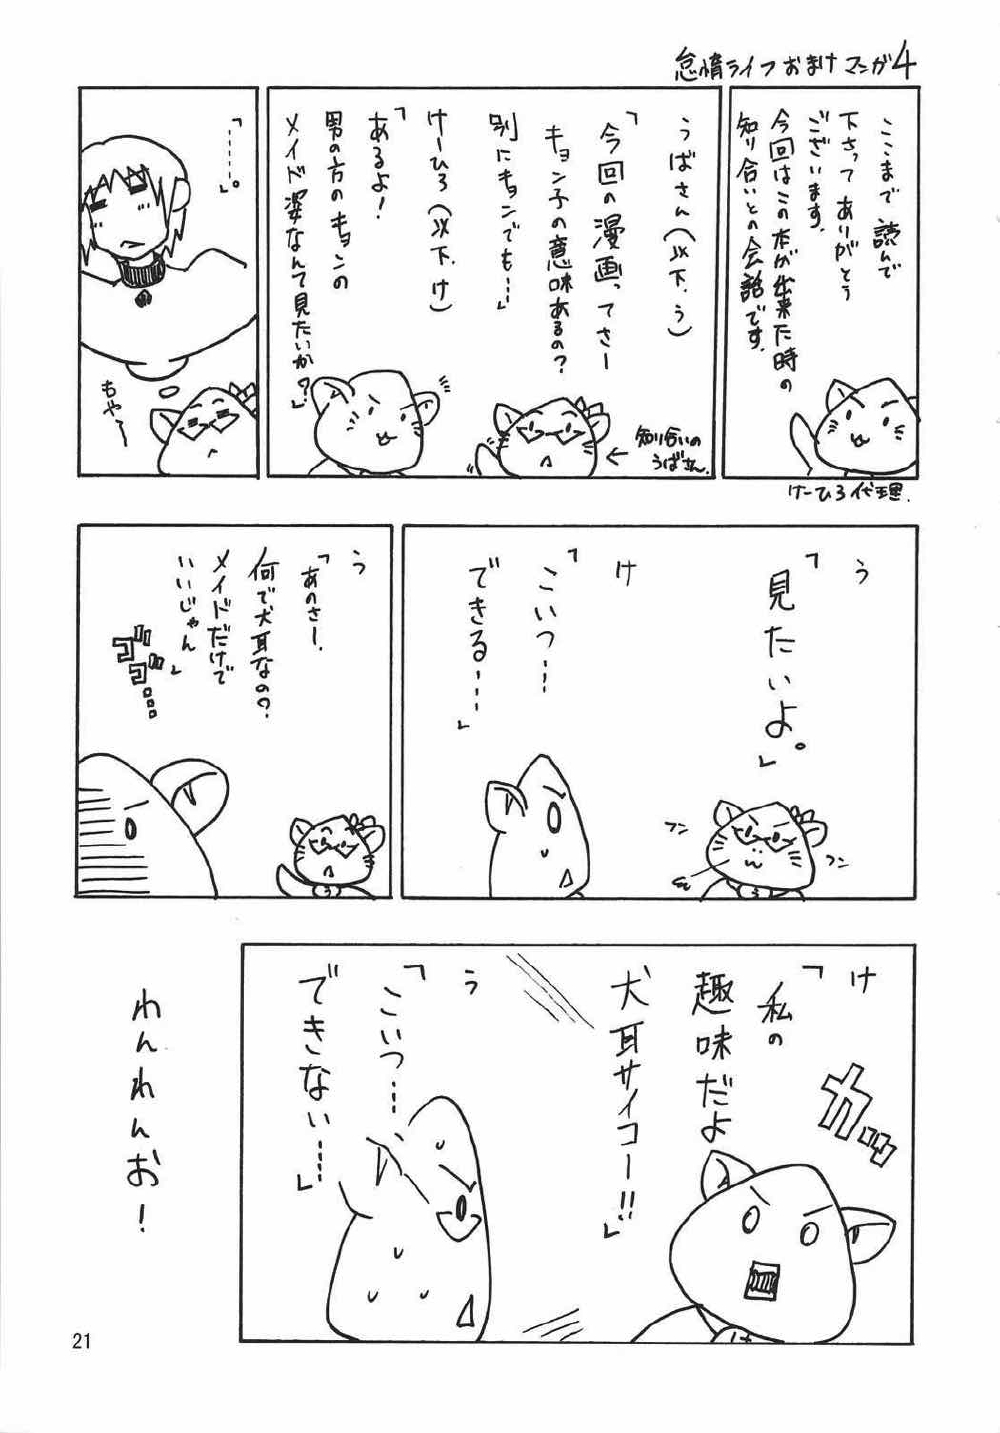 怠惰ライフおまけマンガ4
ここまで読んで
下さってありがとう
ございます。
今回はこの本が出来た時の
知り合いとの会話です。
けーひろ代理。
うばさん(以下、う)
「今回の漫画ってさー
キョン子の意味あるの?
別にキョンでも…」
けーひろ(以下、け)
「あるよ!
男の方のキョンの
メイド姿なんて見たいか?」
知り合いの
うばさん。
「……。」
もやー
う
「見たいよ。」
け
「こいつ…
できる……」
フン
フン
う
う
「あのさー、
何で犬耳なの?
メイドだけで
いいじゃん」
ゴゴゴ…
う
け
「私の
趣味だよ
犬耳サイコー!!」
カッ
け
う
「こいつ……
できない……」
わんわんお!
21